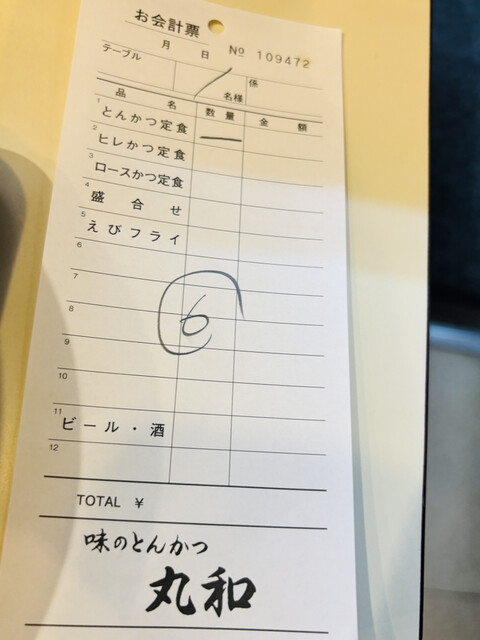 お会計票
月 日 № 109472
テーブル / 名様 係
品 名 数 量 金 額
1 とんかつ定食 一
2 ヒレかつ定食
3 ロースかつ定食
4 盛 合 せ
5 えびフライ
6
7
8
6
9
10
11 ビール・酒
12
TOTAL ¥
味のとんかつ
丸和